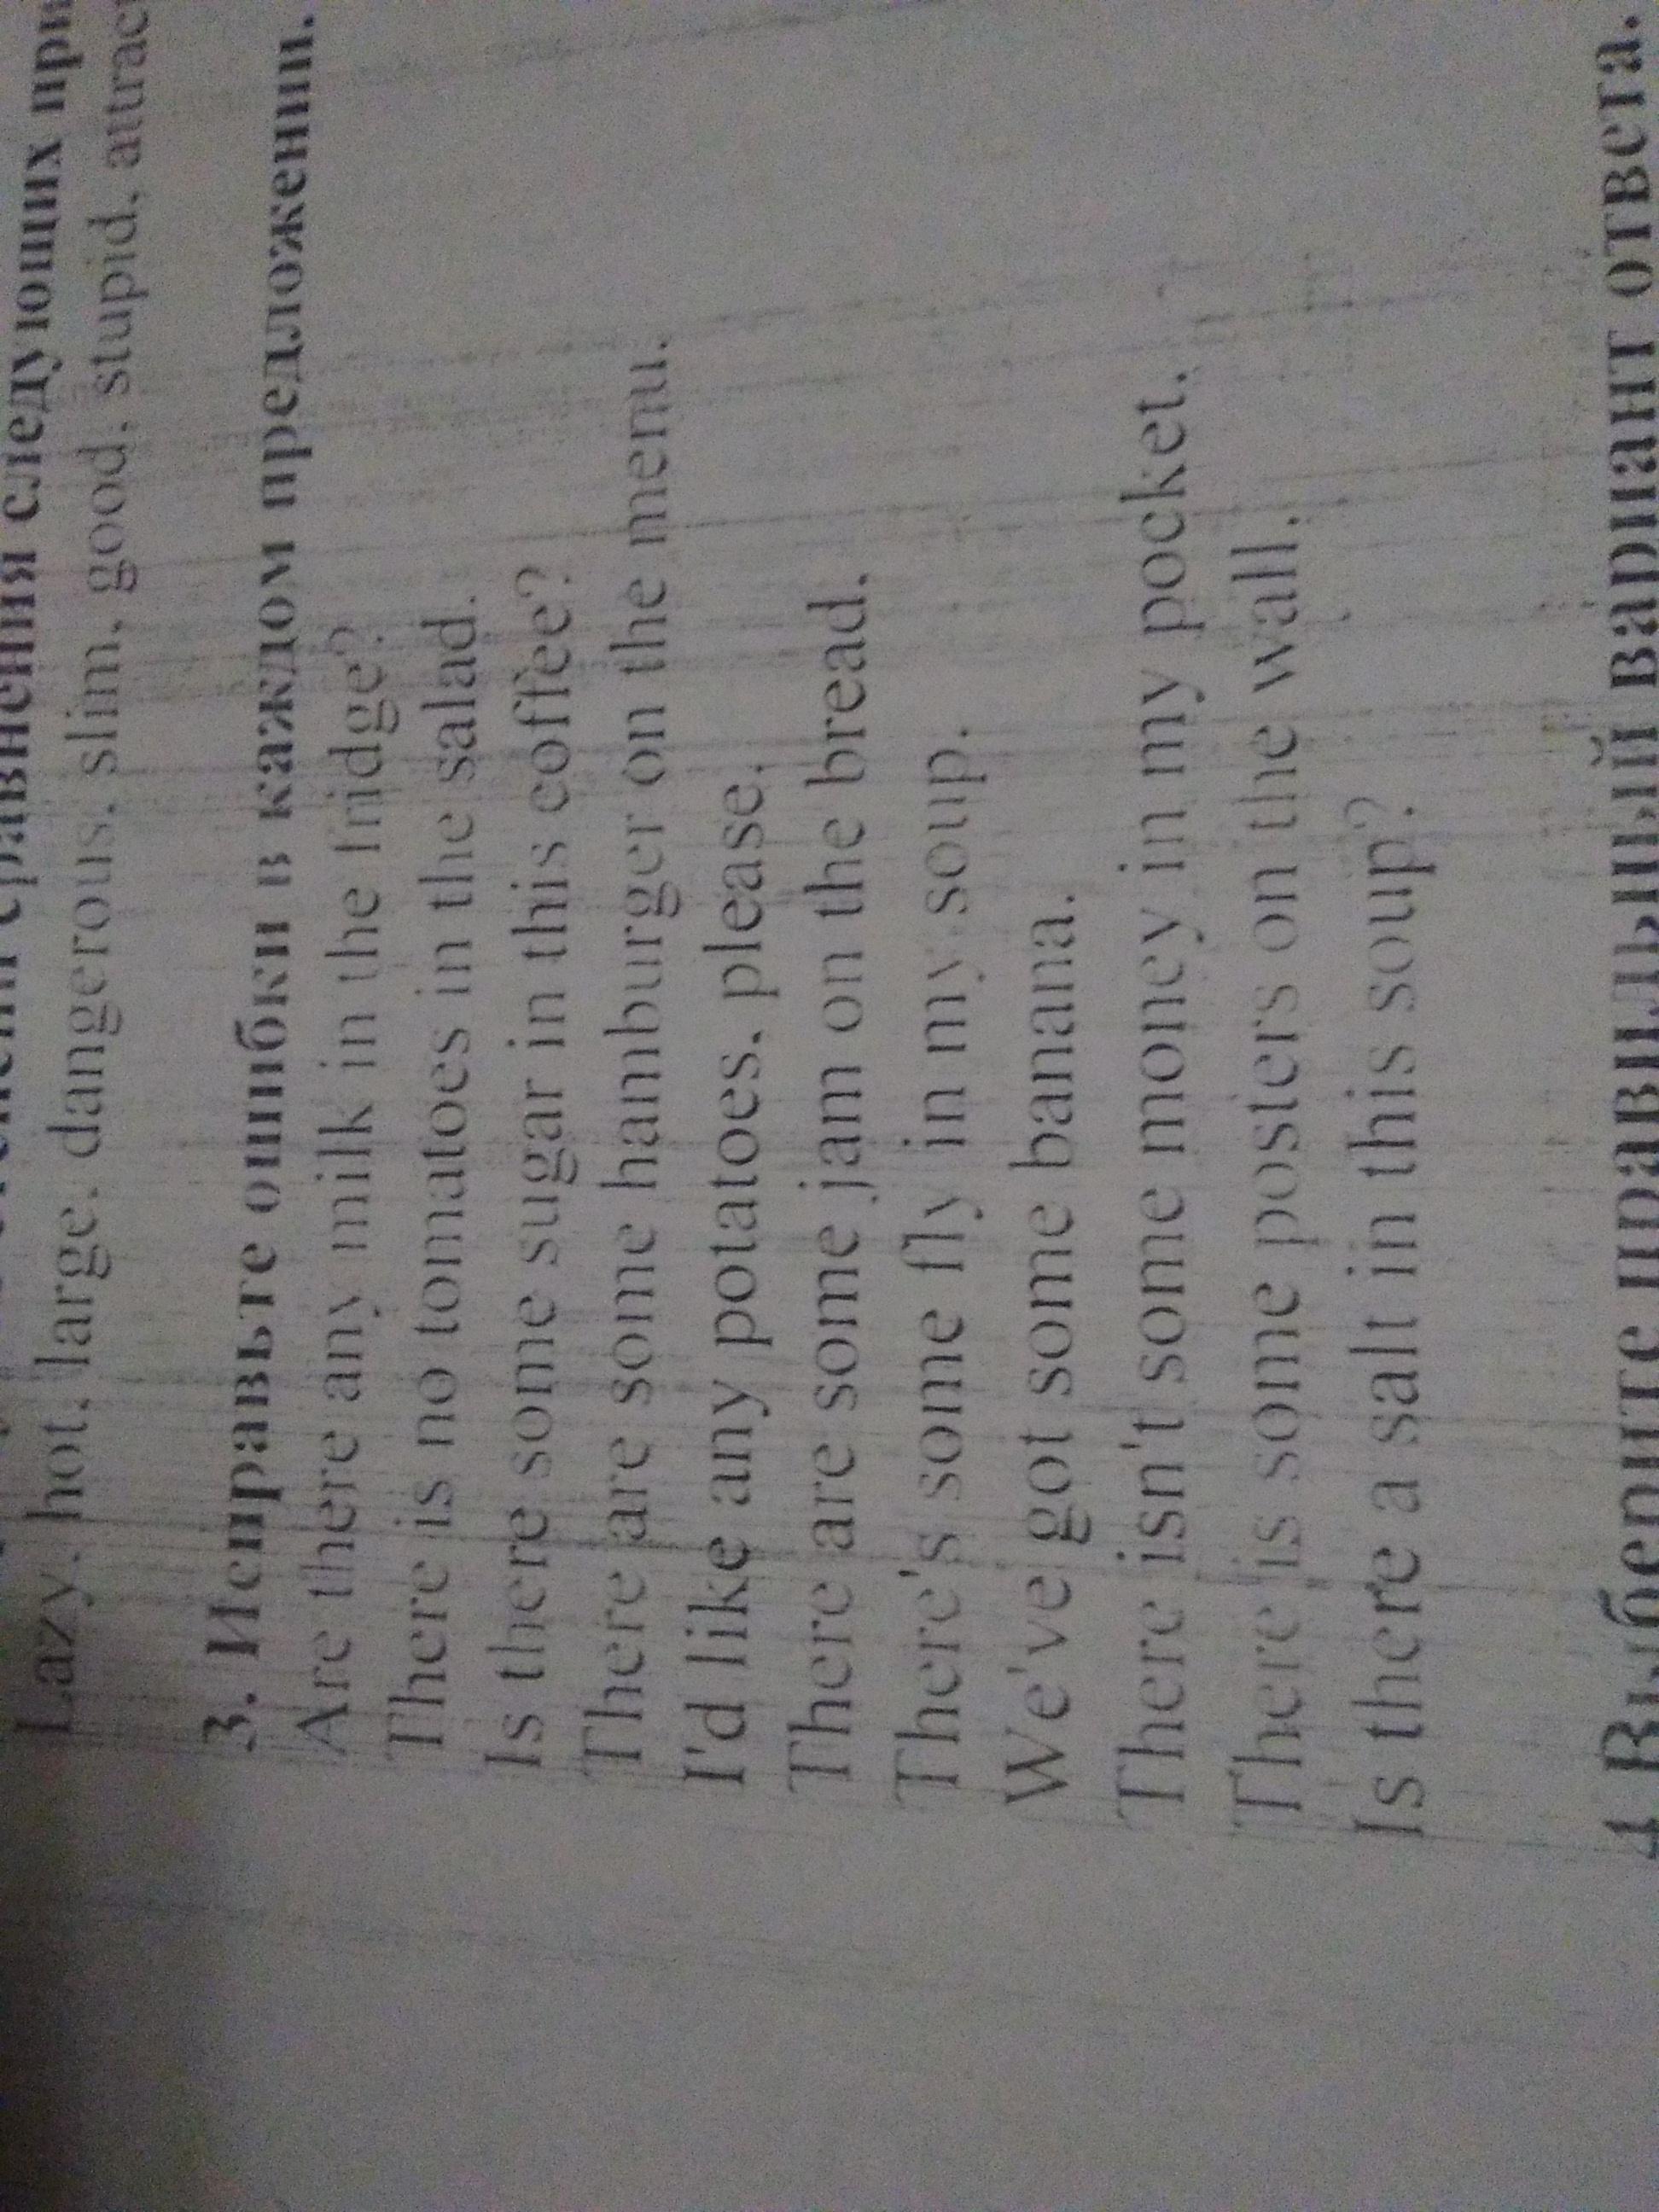 сравнения следующих
Lazy, hot, large, dangerous, slim, good, stupid,
3. Исправьте ошибки в каждом предложении.
Are there any milk in the fridge?
There is no tomatoes in the salad.
Is there some sugar in this coffee?
There are some hamburger on the menu.
I'd like any potatoes, please.
There are some jam on the bread.
There's some fly in my soup.
We've got some banana.
There isn't some money in my pocket.
There is some posters on the wall.
Is there a salt in this soup?
4 Выберите правильный вариант ответа.